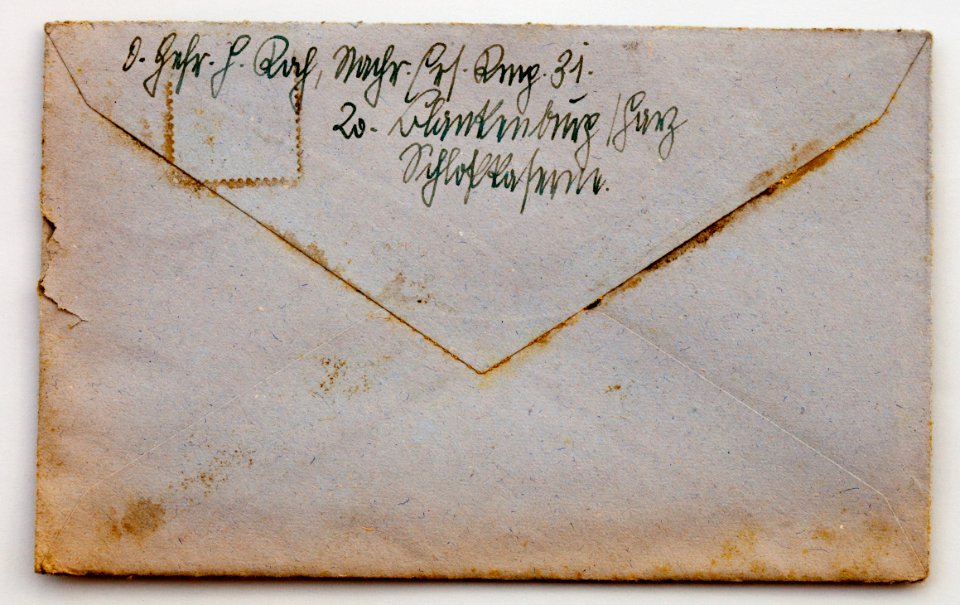 O. Gefr. H. Rach, Nachr. Ers. Komp. 31.
20. Blankenburg/Harz
Schloßkaserne.